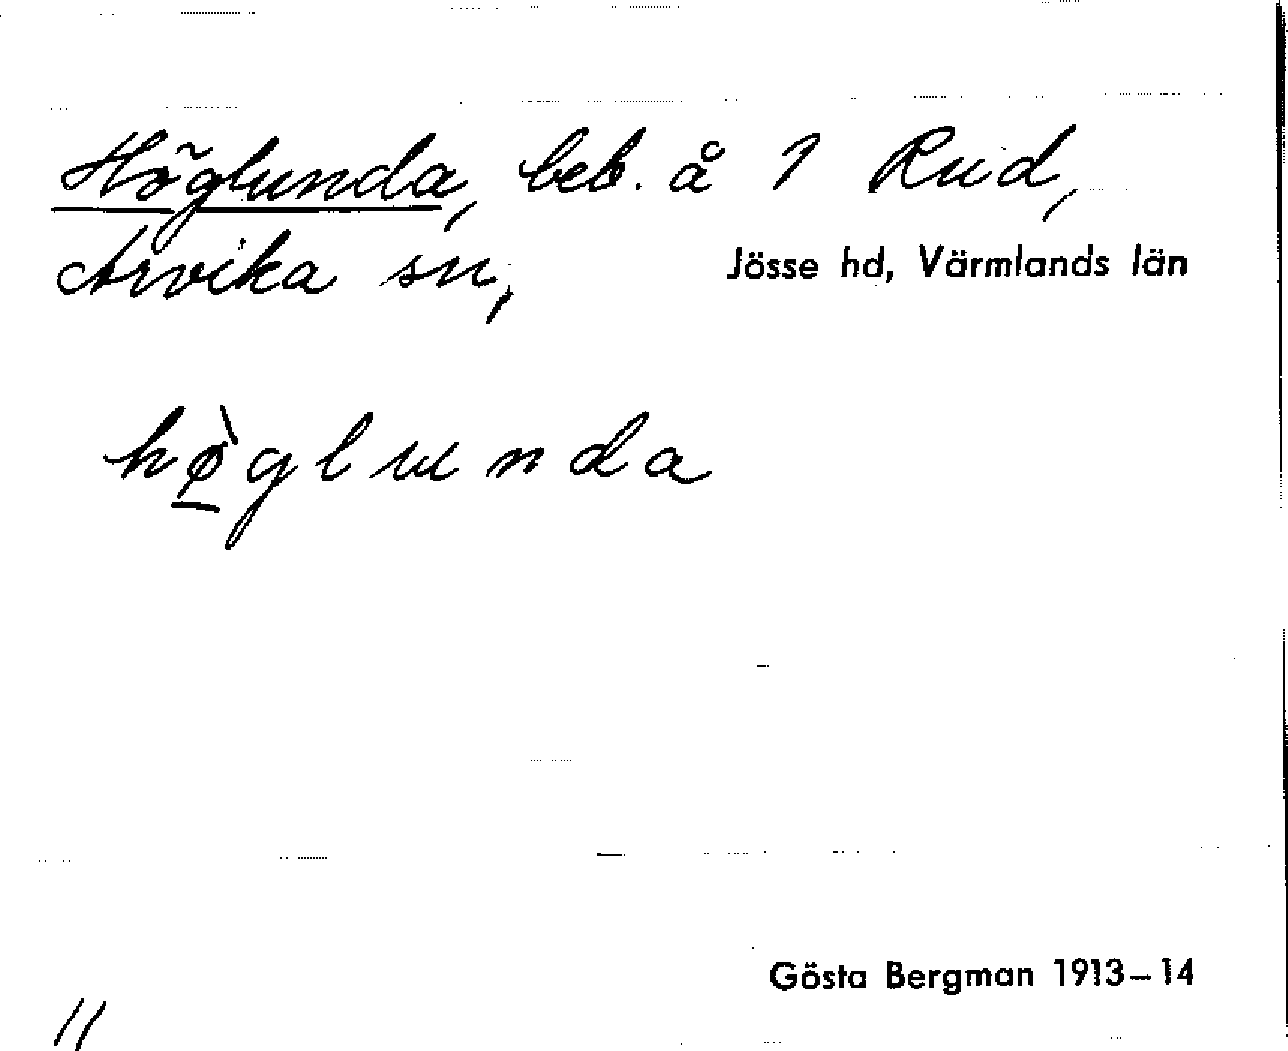 Höglunda, beb. å 1 Rud,
Arvika sn, Jösse hd, Värmlands län
hø̱̀glunda
Gösta Bergman 1913–14
11